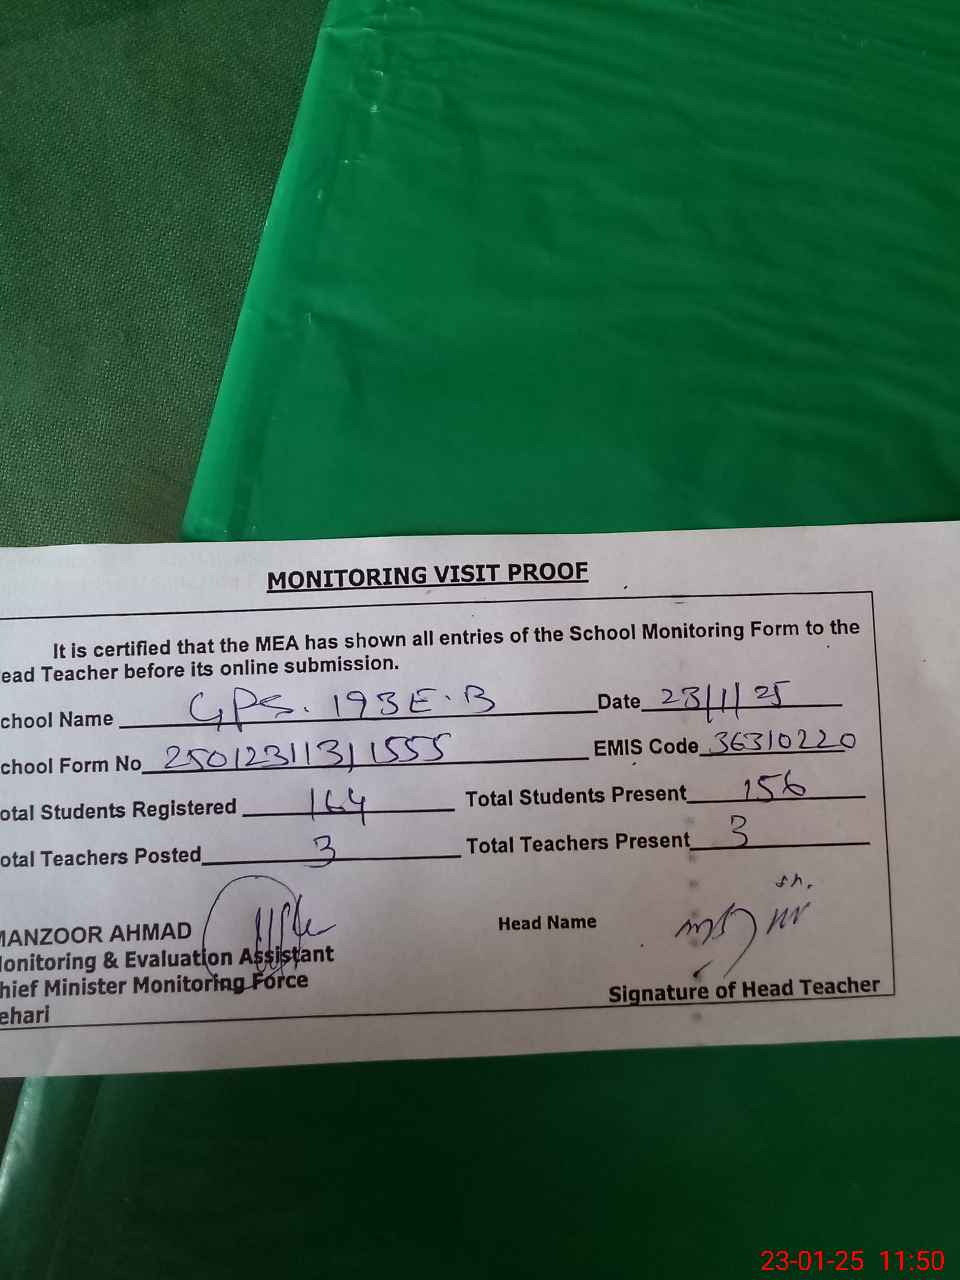 MONITORING VISIT PROOF
It is certified that the MEA has shown all entries of the School Monitoring Form to the
ead Teacher before its online submission.
chool Name GPS. 193 E.B Date 23/1/25
chool Form No 25012311311555 EMIS Code 36310220
otal Students Registered 164 Total Students Present 156
otal Teachers Posted 3 Total Teachers Present 3
MANZOOR AHMAD Head Name
onitoring & Evaluation Assistant
hief Minister Monitoring Force
ehari Signature of Head Teacher
23-01-25 11:50